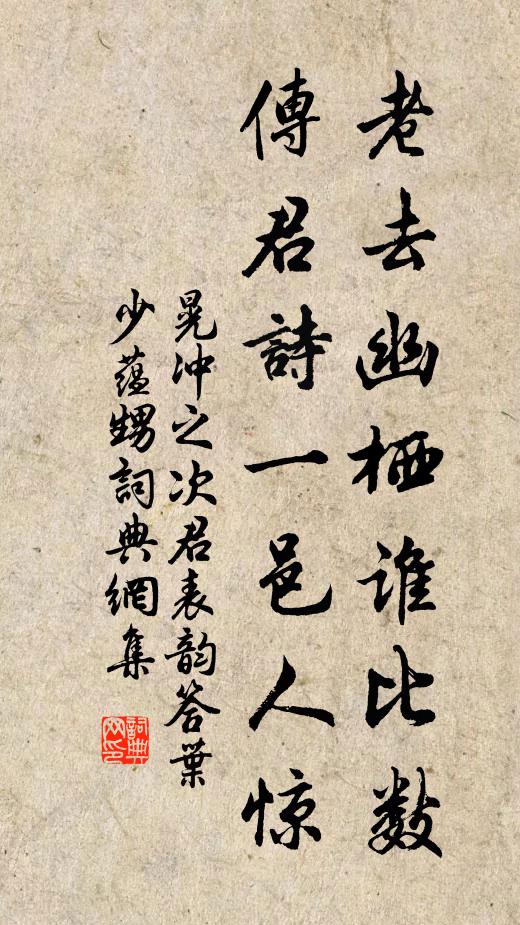 老去幽栖谁比数
傳君詩一邑人惊
晁冲之次君表韵答葉
少蕴甥詞典網集
詞典
网印